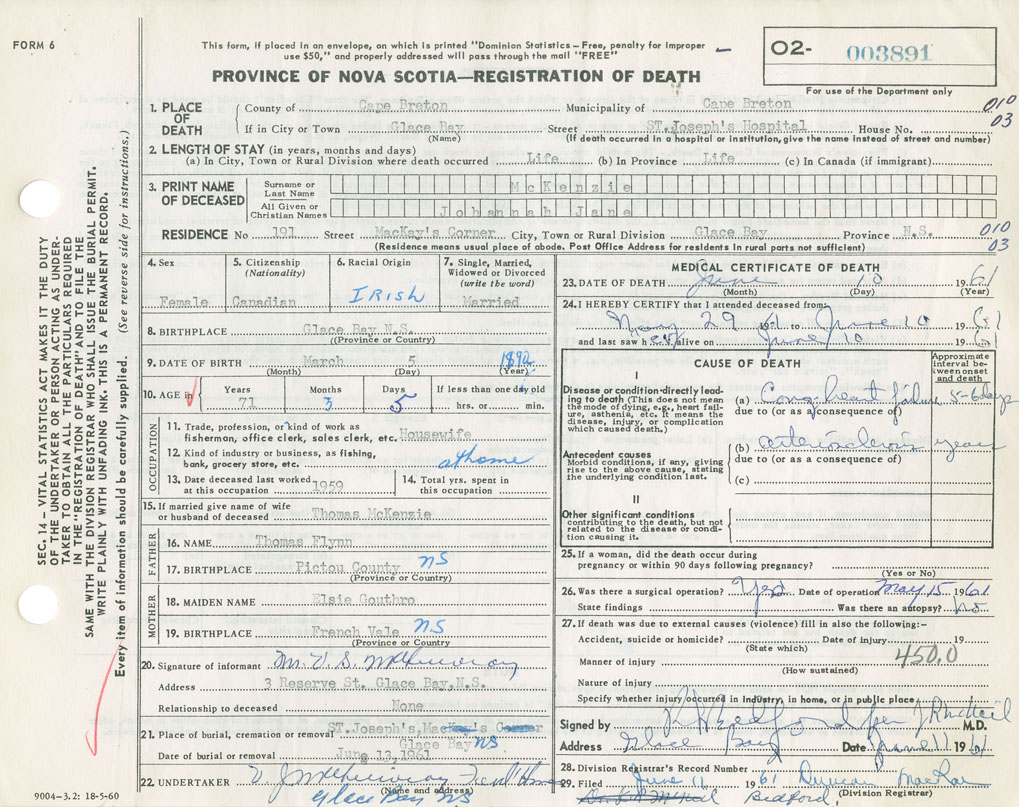 FORM 6
This form, if placed in an envelope, on which is printed "Dominion Statistics – Free, penalty for improper
use $50," and properly addressed will pass through the mail "FREE"
PROVINCE OF NOVA SCOTIA—REGISTRATION OF DEATH
O2- 003891
For use of the Department only
1. PLACE OF DEATH
County of Cape Breton Municipality of Cape Breton 010
If in City or Town Glace Bay Street ST. Joseph's Hospital House No. 03
(Name) (If death occurred in a hospital or institution, give the name instead of street and number)
2. LENGTH OF STAY (in years, months and days)
(a) In City, Town or Rural Division where death occurred Life (b) In Province Life (c) In Canada (if immigrant)
3. PRINT NAME OF DECEASED
Surname or Last Name McKenzie
All Given or Christian Names Johannah Jane
RESIDENCE No 191 Street MacKay's Corner City, Town or Rural Division Glace Bay Province N.S. 010
(Residence means usual place of abode. Post Office Address for residents in rural parts not sufficient) 03
4. Sex
Female
5. Citizenship
(Nationality)
Canadian
6. Racial Origin
IRish
7. Single, Married,
Widowed or Divorced
(write the word)
Married
8. BIRTHPLACE Glace Bay N.S.
(Province or Country)
9. DATE OF BIRTH March 5
(Month) (Day) (Year)
10. AGE in
Years Months Days If less than one day old
71 3 5 hrs. or min.
OCCUPATION
11. Trade, profession, or kind of work as
fisherman, office clerk, sales clerk, etc. Housewife
12. Kind of industry or business, as fishing,
bank, grocery store, etc. at home
13. Date deceased last worked
at this occupation 1959
14. Total yrs. spent in
this occupation
15. If married give name of wife
or husband of deceased Thomas McKenzie
FATHER
16. NAME Thomas Flynn
17. BIRTHPLACE Pictou County NS
(Province or Country)
MOTHER
18. MAIDEN NAME Elsie Gouthro
19. BIRTHPLACE French Vale NS
(Province or Country)
20. Signature of informant Mr. V. S. McGillivray
Address 3 Reserve St. Glace Bay, N.S.
Relationship to deceased None
21. Place of burial, cremation or removal ST. Joseph's,
Glace Bay NS
Date of burial or removal June 13, 1961
22. UNDERTAKER
(Name and address)
Glace Bay NS
9004-3.2: 18-5-60
MEDICAL CERTIFICATE OF DEATH
23. DATE OF DEATH June 10 1961
(Month) (Day) (Year)
24. I HEREBY CERTIFY that I attended deceased from:
May 29 1961 to June 10 1961
and last saw her alive on June 10 1961
CAUSE OF DEATH
Approximate
interval be-
tween onset
and death
I
Disease or condition directly lead-
ing to death (This does not mean
the mode of dying, e.g., heart fail-
ure, asthenia, etc. It means the
disease, injury, or complication
which caused death.)
(a) Cong. heart failure 5-6 days
due to (or as a consequence of)
Antecedent causes
Morbid conditions, if any, giving
rise to the above cause, stating
the underlying condition last.
(b) arteriosclerosis years
due to (or as a consequence of)
(c)
II
Other significant conditions
contributing to the death, but not
related to the disease or condi-
tion causing it.
25. If a woman, did the death occur during
pregnancy or within 90 days following pregnancy?
(Yes or No)
26. Was there a surgical operation? Yes Date of operation May 15 1961
State findings Was there an autopsy? No
27. If death was due to external causes (violence) fill in also the following:–
Accident, suicide or homicide? Date of injury 19
(State which)
450.0
Manner of injury
(How sustained)
Nature of injury
Specify whether injury occurred in industry, in home, or in public place
Signed by M.D.
Address Glace Bay Date June 11 1961
28. Division Registrar's Record Number
29. Filed June 11 1961 Duncan MacRae
(Division Registrar)
Bedford
SEC. 14 – VITAL STATISTICS ACT MAKES IT THE DUTY
OF THE UNDERTAKER OR PERSON ACTING AS UNDER-
TAKER TO OBTAIN ALL THE PARTICULARS REQUIRED
IN THE "REGISTRATION OF DEATH" AND TO FILE THE
SAME WITH THE DIVISION REGISTRAR WHO SHALL ISSUE THE BURIAL PERMIT.
WRITE PLAINLY WITH UNFADING INK. THIS IS A PERMANENT RECORD.
Every item of information should be carefully supplied. (See reverse side for instructions.)